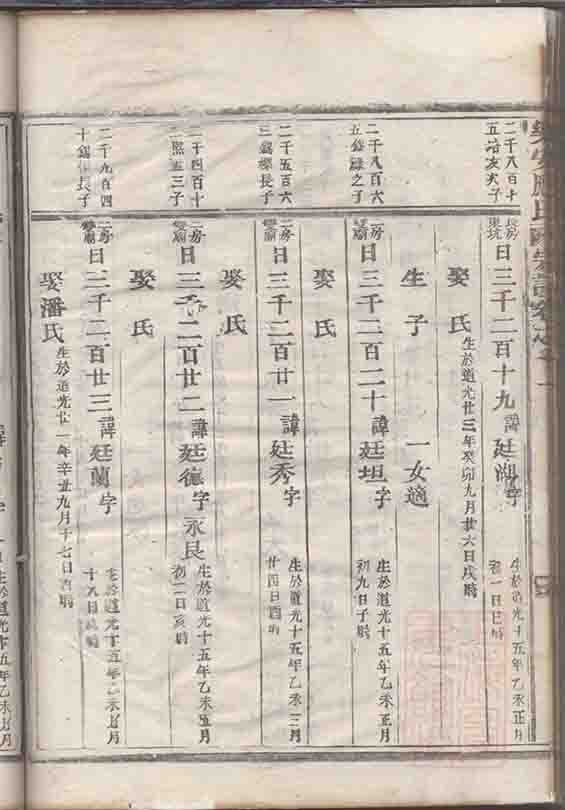 二千八百十
五
長房
東坑
日三千二百十九諱廷湖字
生於道光十五年乙未正月
初一日巳時
娶氏
生於道光廿三年癸卯九月廿六日戌時
生子
一女適
二千八百六
五錄之子
二房
日三千二百二十諱廷坦字
生於道光十五年乙未正月
初九日子時
娶氏
二千五百六
三長子
二房
日三千二百廿一諱廷秀字
生於道光十五年乙未三月
廿四日酉時
娶氏
二千四百十
二熙五三子
二房
日三千二百廿二諱廷德字永良
生於道光十五年乙未五月
初二日亥時
娶氏
二千九百四
十長子
二房
日三千二百廿三諱廷蘭字
生於道光十五年乙未五月
十九日時
娶潘氏
生於道光廿一年辛丑九月十七日酉時